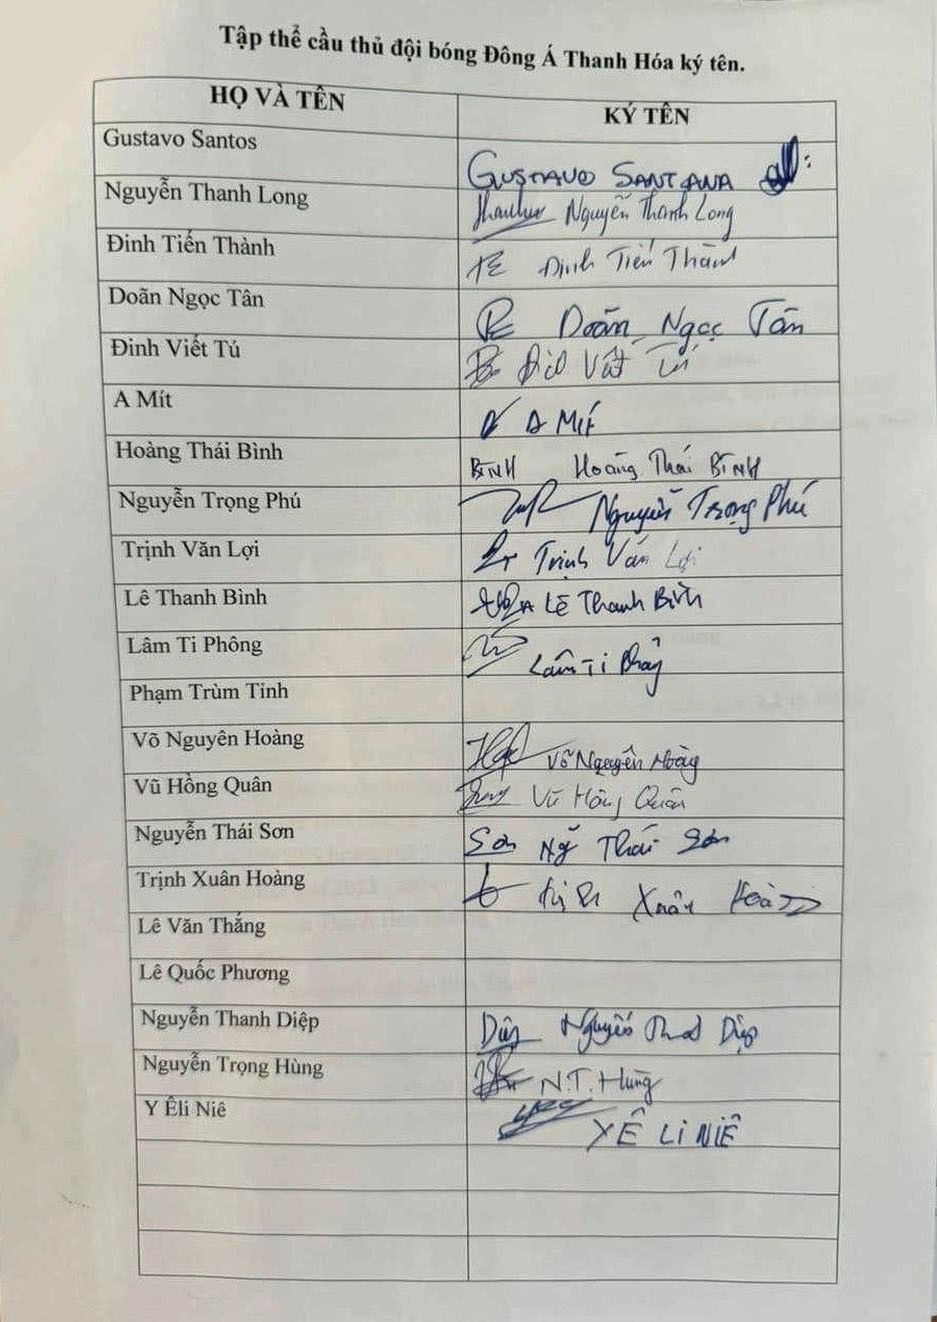 Tập thể cầu thủ đội bóng Đông Á Thanh Hóa ký tên.
HỌ VÀ TÊN KÝ TÊN
Gustavo Santos GUSTAVO SANTANA
Nguyễn Thanh Long Nguyễn Thanh Long
Đinh Tiến Thành Đinh Tiến Thành
Doãn Ngọc Tân Doãn Ngọc Tân
Đinh Viết Tú Tú
A Mít A Mít
Hoàng Thái Bình BÌNH Hoàng Thái BÌNH
Nguyễn Trọng Phú Nguyễn Trọng Phú
Trịnh Văn Lợi Trịnh Văn Lợi
Lê Thanh Bình LÊ Thanh Bình
Lâm Ti Phông Lâm Ti Phông
Phạm Trùm Tỉnh
Võ Nguyên Hoàng Võ Nguyên Hoàng
Vũ Hồng Quân Vũ Hồng Quân
Nguyễn Thái Sơn Sơn Ng~ Thái Sơn
Trịnh Xuân Hoàng Xuân Hoàng
Lê Văn Thắng
Lê Quốc Phương
Nguyễn Thanh Diệp Diệp Nguyễn Thanh Diệp
Nguyễn Trọng Hùng N.T. Hùng
Y Êli Niê Y Ê Li NIÊ